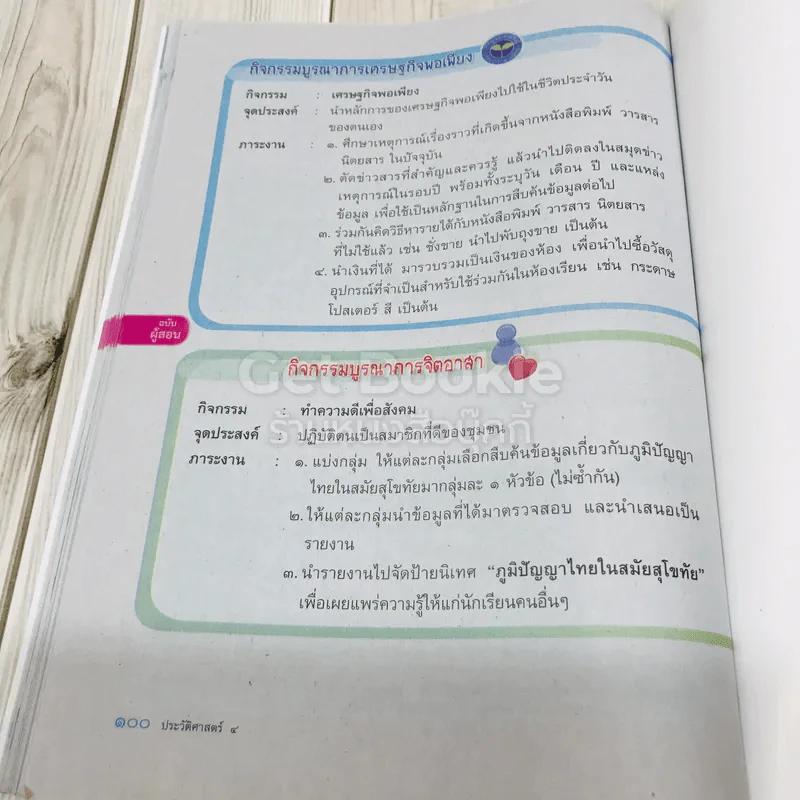 กิจกรรมบูรณาการเศรษฐกิจพอเพียง
กิจกรรม : เศรษฐกิจพอเพียง
จุดประสงค์ : นำหลักการของเศรษฐกิจพอเพียงไปใช้ในชีวิตประจำวัน
ของตนเอง
ภาระงาน : ๑. ศึกษาเหตุการณ์เรื่องราวที่เกิดขึ้นจากหนังสือพิมพ์ วารสาร
นิตยสาร ในปัจจุบัน
๒. ตัดข่าวสารที่สำคัญและควรรู้ แล้วนำไปติดลงในสมุดข่าว
เหตุการณ์ในรอบปี พร้อมทั้งระบุวัน เดือน ปี และแหล่ง
ข้อมูล เพื่อใช้เป็นหลักฐานในการสืบค้นข้อมูลต่อไป
๓. ร่วมกันคิดวิธีหารายได้กับหนังสือพิมพ์ วารสาร นิตยสาร
ที่ไม่ใช้แล้ว เช่น ชั่งขาย นำไปพับถุงขาย เป็นต้น
๔. นำเงินที่ได้ มารวบรวมเป็นเงินของห้อง เพื่อนำไปซื้อวัสดุ
อุปกรณ์ที่จำเป็นสำหรับใช้ร่วมกันในห้องเรียน เช่น กระดาษ
โปสเตอร์ สี เป็นต้น
ฉบับ
ผู้สอน
กิจกรรมบูรณาการจิตอาสา
Get Bookie
ร้านหนังสือบุ๊คกี้
กิจกรรม : ทำความดีเพื่อสังคม
จุดประสงค์ : ปฏิบัติตนเป็นสมาชิกที่ดีของชุมชน
ภาระงาน : ๑. แบ่งกลุ่ม ให้แต่ละกลุ่มเลือกสืบค้นข้อมูลเกี่ยวกับภูมิปัญญา
ไทยในสมัยสุโขทัยมากลุ่มละ ๑ หัวข้อ (ไม่ซ้ำกัน)
๒. ให้แต่ละกลุ่มนำข้อมูลที่ได้มาตรวจสอบ และนำเสนอเป็น
รายงาน
๓. นำรายงานไปจัดป้ายนิเทศ “ภูมิปัญญาไทยในสมัยสุโขทัย”
เพื่อเผยแพร่ความรู้ให้แก่นักเรียนคนอื่นๆ
๑๐๐ ประวัติศาสตร์ ๔